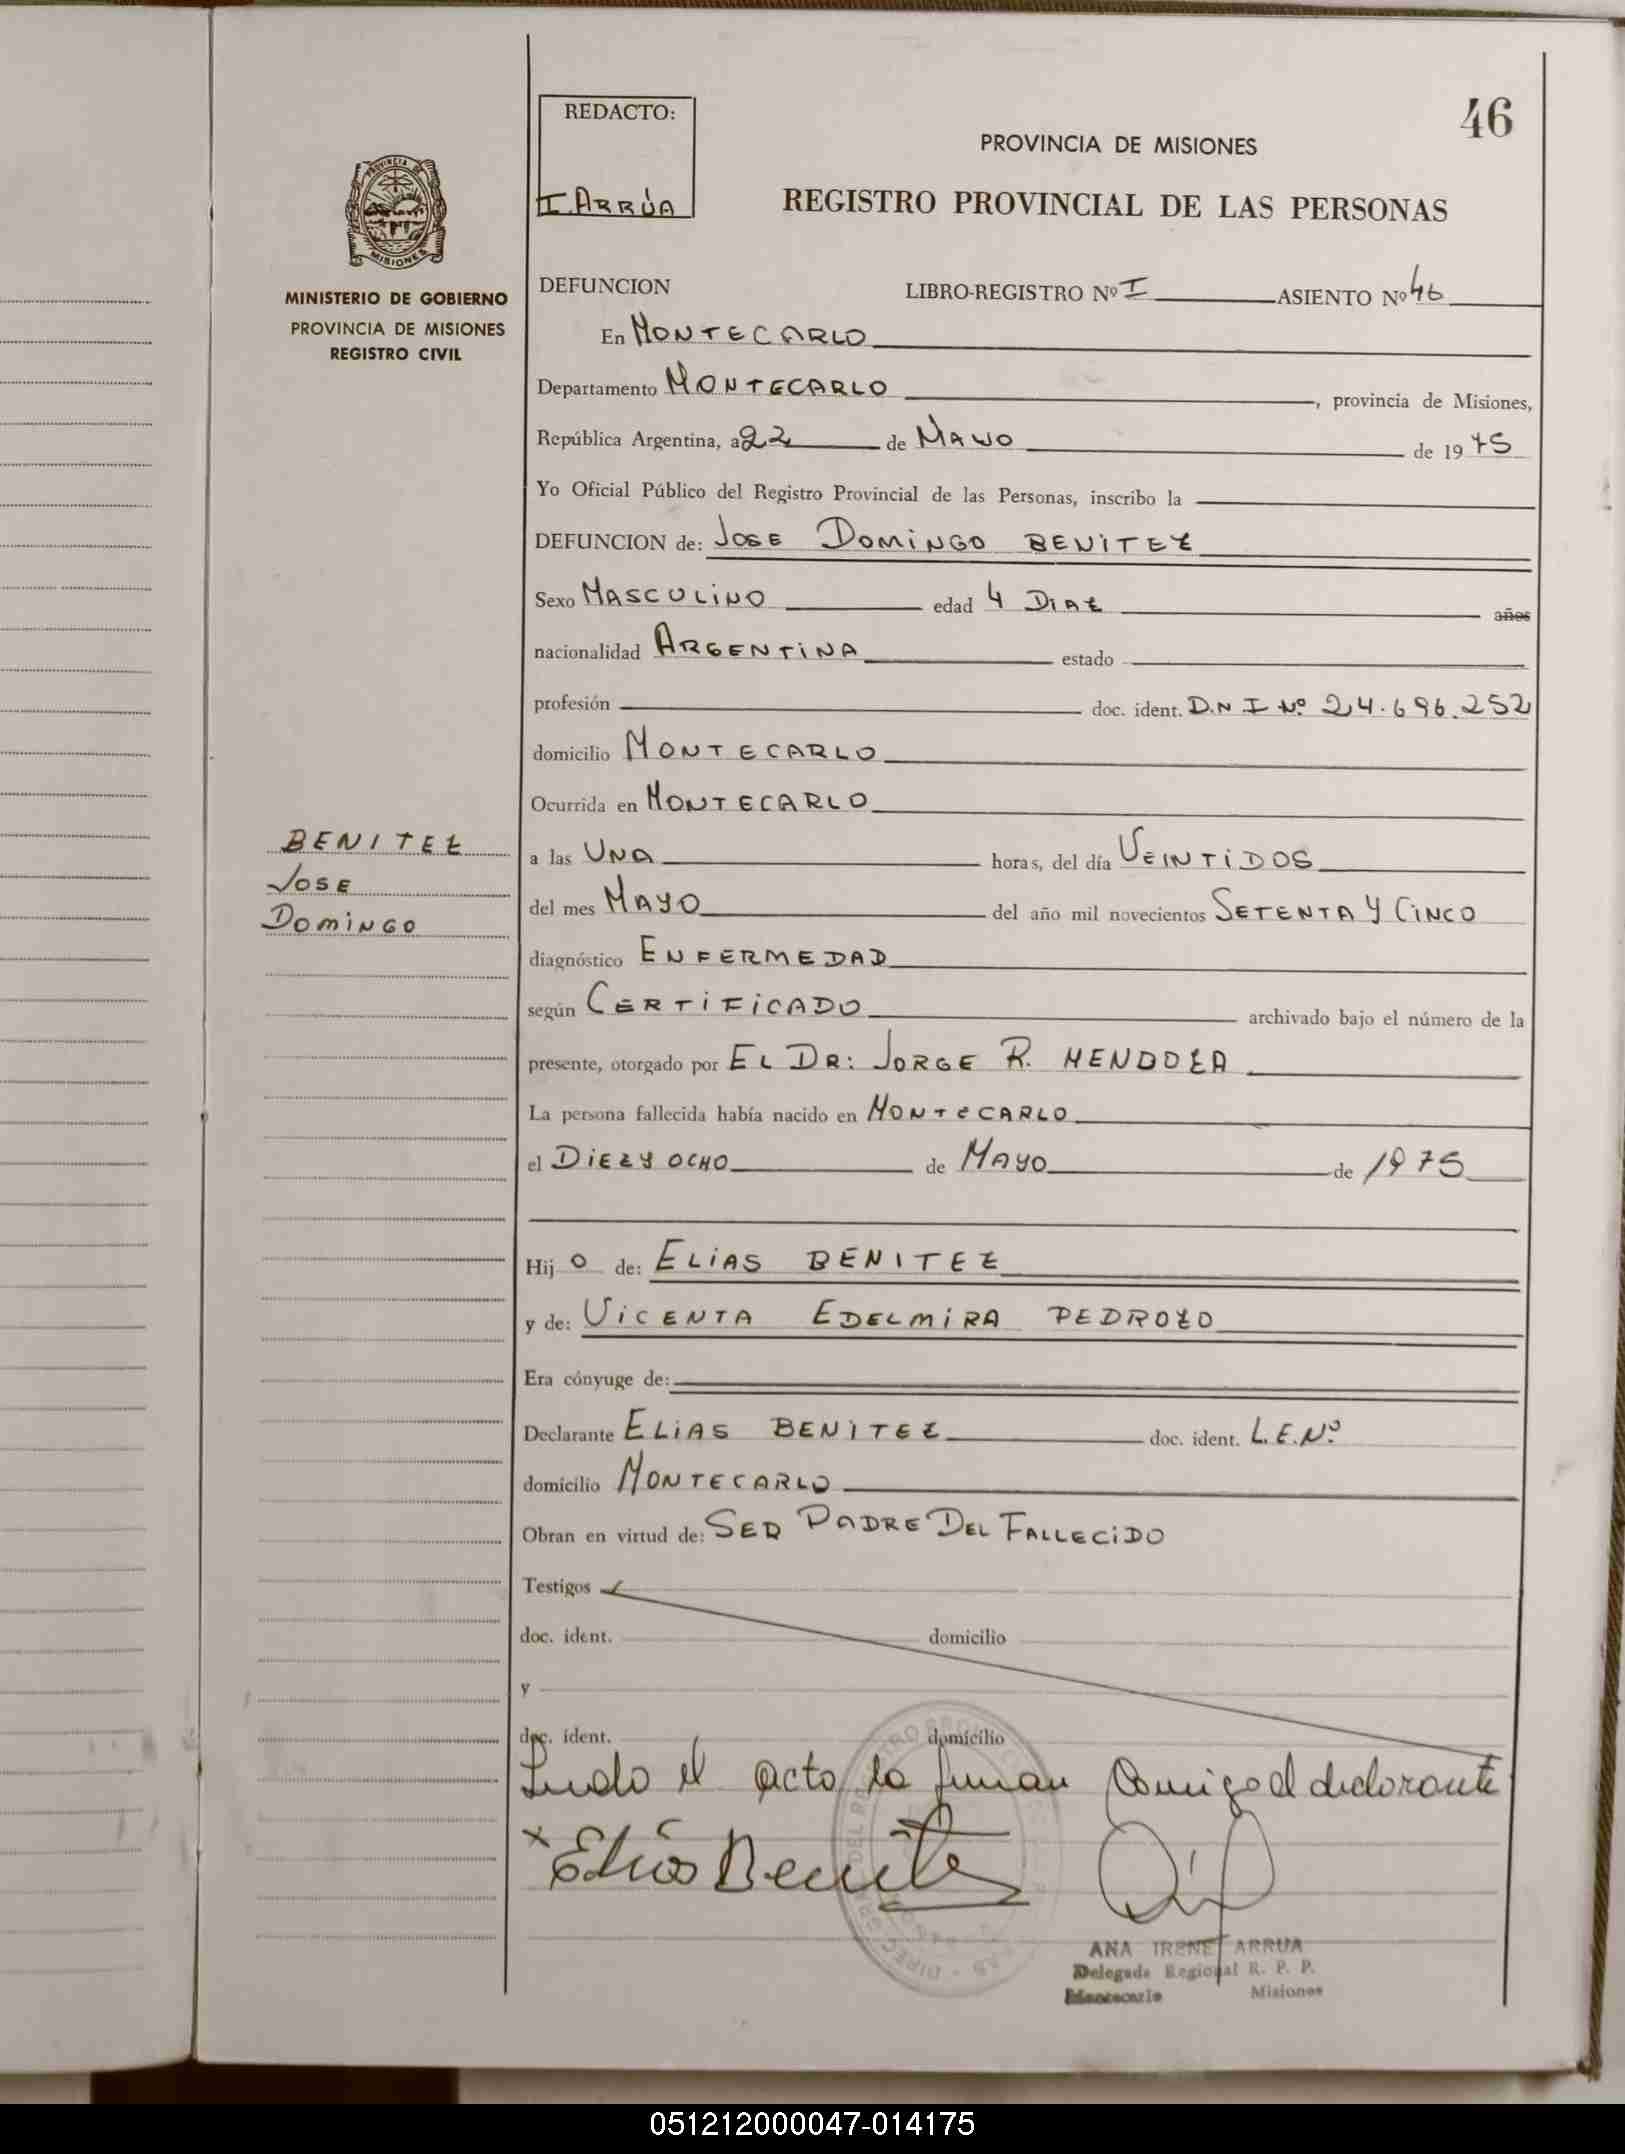 46
REDACTO:
I. ARRÚA
PROVINCIA DE MISIONES
REGISTRO PROVINCIAL DE LAS PERSONAS
PROVINCIA DE
MISIONES
MINISTERIO DE GOBIERNO
PROVINCIA DE MISIONES
REGISTRO CIVIL
DEFUNCION LIBRO-REGISTRO Nº I ASIENTO Nº 46
En MONTECARLO
Departamento MONTECARLO, provincia de Misiones,
República Argentina, a 22 de MAYO de 1975
Yo Oficial Público del Registro Provincial de las Personas, inscribo la
DEFUNCION de: JOSE DOMINGO BENITEZ
Sexo MASCULINO edad 4 DIAZ años
nacionalidad ARGENTINA estado
profesión doc. ident. D.N I Nº 24.696.252
domicilio MONTECARLO
Ocurrida en MONTECARLO
BENITEZ
JOSE
DOMINGO
a las UNA horas, del día VEINTIDOS
del mes MAYO del año mil novecientos SETENTA Y CINCO
diagnóstico ENFERMEDAD
según CERTIFICADO archivado bajo el número de la
presente, otorgado por EL DR: JORGE R. MENDOZA
La persona fallecida había nacido en MONTECARLO
el DIEZ Y OCHO de MAYO de 1975
Hij o de: ELIAS BENITEZ
y de: VICENTA EDELMIRA PEDROZO
Era cónyuge de:
Declarante ELIAS BENITEZ doc. ident. L.E.Nº
domicilio MONTECARLO
Obran en virtud de: SER PADRE DEL FALLECIDO
Testigos
doc. ident. domicilio
y
doc. ident. domicilio
Leido el acto, la firman Comigo el declarante
x Elias Benitez
ANA IRENE ARRUA
Delegada Regional R. P. P.
Montecarlo Misiones
051212000047-014175